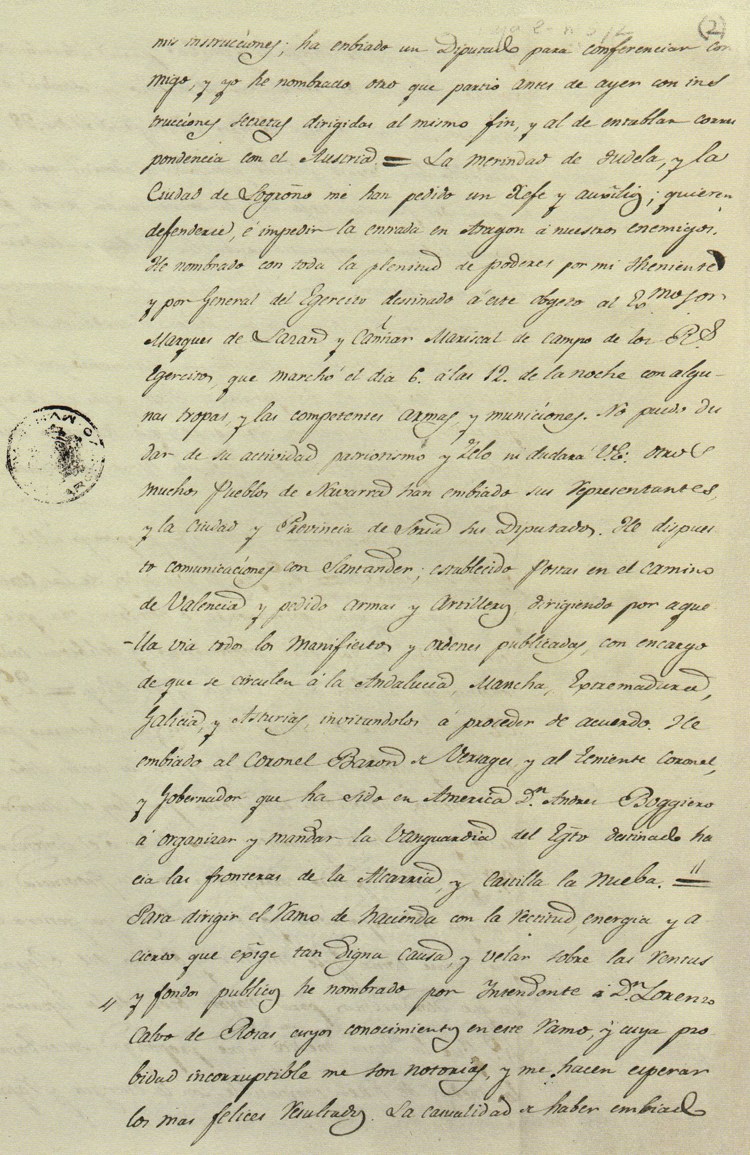 (2)
mis instrucciones; ha enbiado un Diputado para conferenciar con
migo, y yo he nombrado otro que partio antes de ayer con ins
trucciones secretas dirigidas al mismo fin, y al de entablar corres
pondencia con el Austria = La merindad de Tudela, y la
Ciudad de Logroño me han pedido un Xefe y auxilios; quieren
defenderse, é impedir la entrada en Aragon á nuestros enemigos.
He nombrado con toda la plenitud de poderes por mi theniente
y por General del Egercito destinado á este obgeto al Exmo Sor
Marques de Lazan y Cañizar Mariscal de Campo de los Rs
Egercitos, que marchó el dia 6. á las 12. de la noche con algu
nas tropas, y las competentes armas y municiones. No puedo du
dar de su actividad patriotismo y Zelo ni dudará V.E. otros
muchos Pueblos de Navarra han embiado sus representantes,
y la Ciudad y Provincia de Soria sus Diputados. He dispues
to comunicaciones con Santander; establecido Postas en el camino
de Valencia y pedido armas y Artilleros dirigiendo por aque
lla via todos los Manifiestos y ordenes publicadas, con encargo
de que se circulen á la Andalucia, Mancha, Extremadura,
Galicia, y Asturias, invitandolos á proceder de acuerdo. He
embiado al Coronel Baron de Versages, y al teniente Coronel,
y Gobernador que ha sido en America Dn Andres Boggiero
á organizar y mandar la Vanguardia del Egto destinado ha
cia las fronteras de la Alcarria, y Castilla la Nueba. =
Para dirigir el ramo de hacienda con la rectitud energia y a
cierto que exige tan digna causa, y velar sobre las rentas
y fondos publicos he nombrado por Intendente á Dn Lorenzo
Calvo de Rozas cuyos conocimientos en este ramo, y cuya pro
bidad incorruptible me son notorias, y me hacen esperar
los mas felices resultados. La casualidad de haber embiado